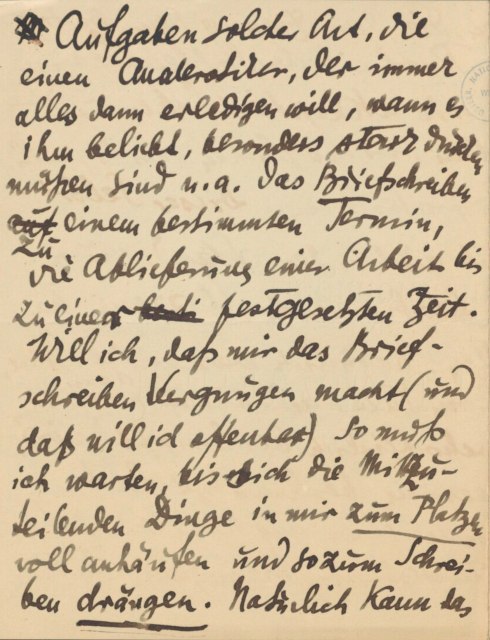 Aufgaben solcher Art, die
einen Analerotiker, der immer
alles dann erledigen will, wann es
ihm beliebt, besonders stark drücken
müssen sind u.a. das Briefschreiben
zu einem bestimmten Termin,
die Ablieferung einer Arbeit bis
zu einer festgesetzten Zeit.
Will ich, daß mir das Brief-
schreiben Vergnügen macht (und
daß will ich offenbar) so muß
ich warten, bis sich die Mitzu-
teilenden Dinge in mir zum Platzen
voll anhäufen und so zum Schrei-
ben drängen. Natürlich kann das